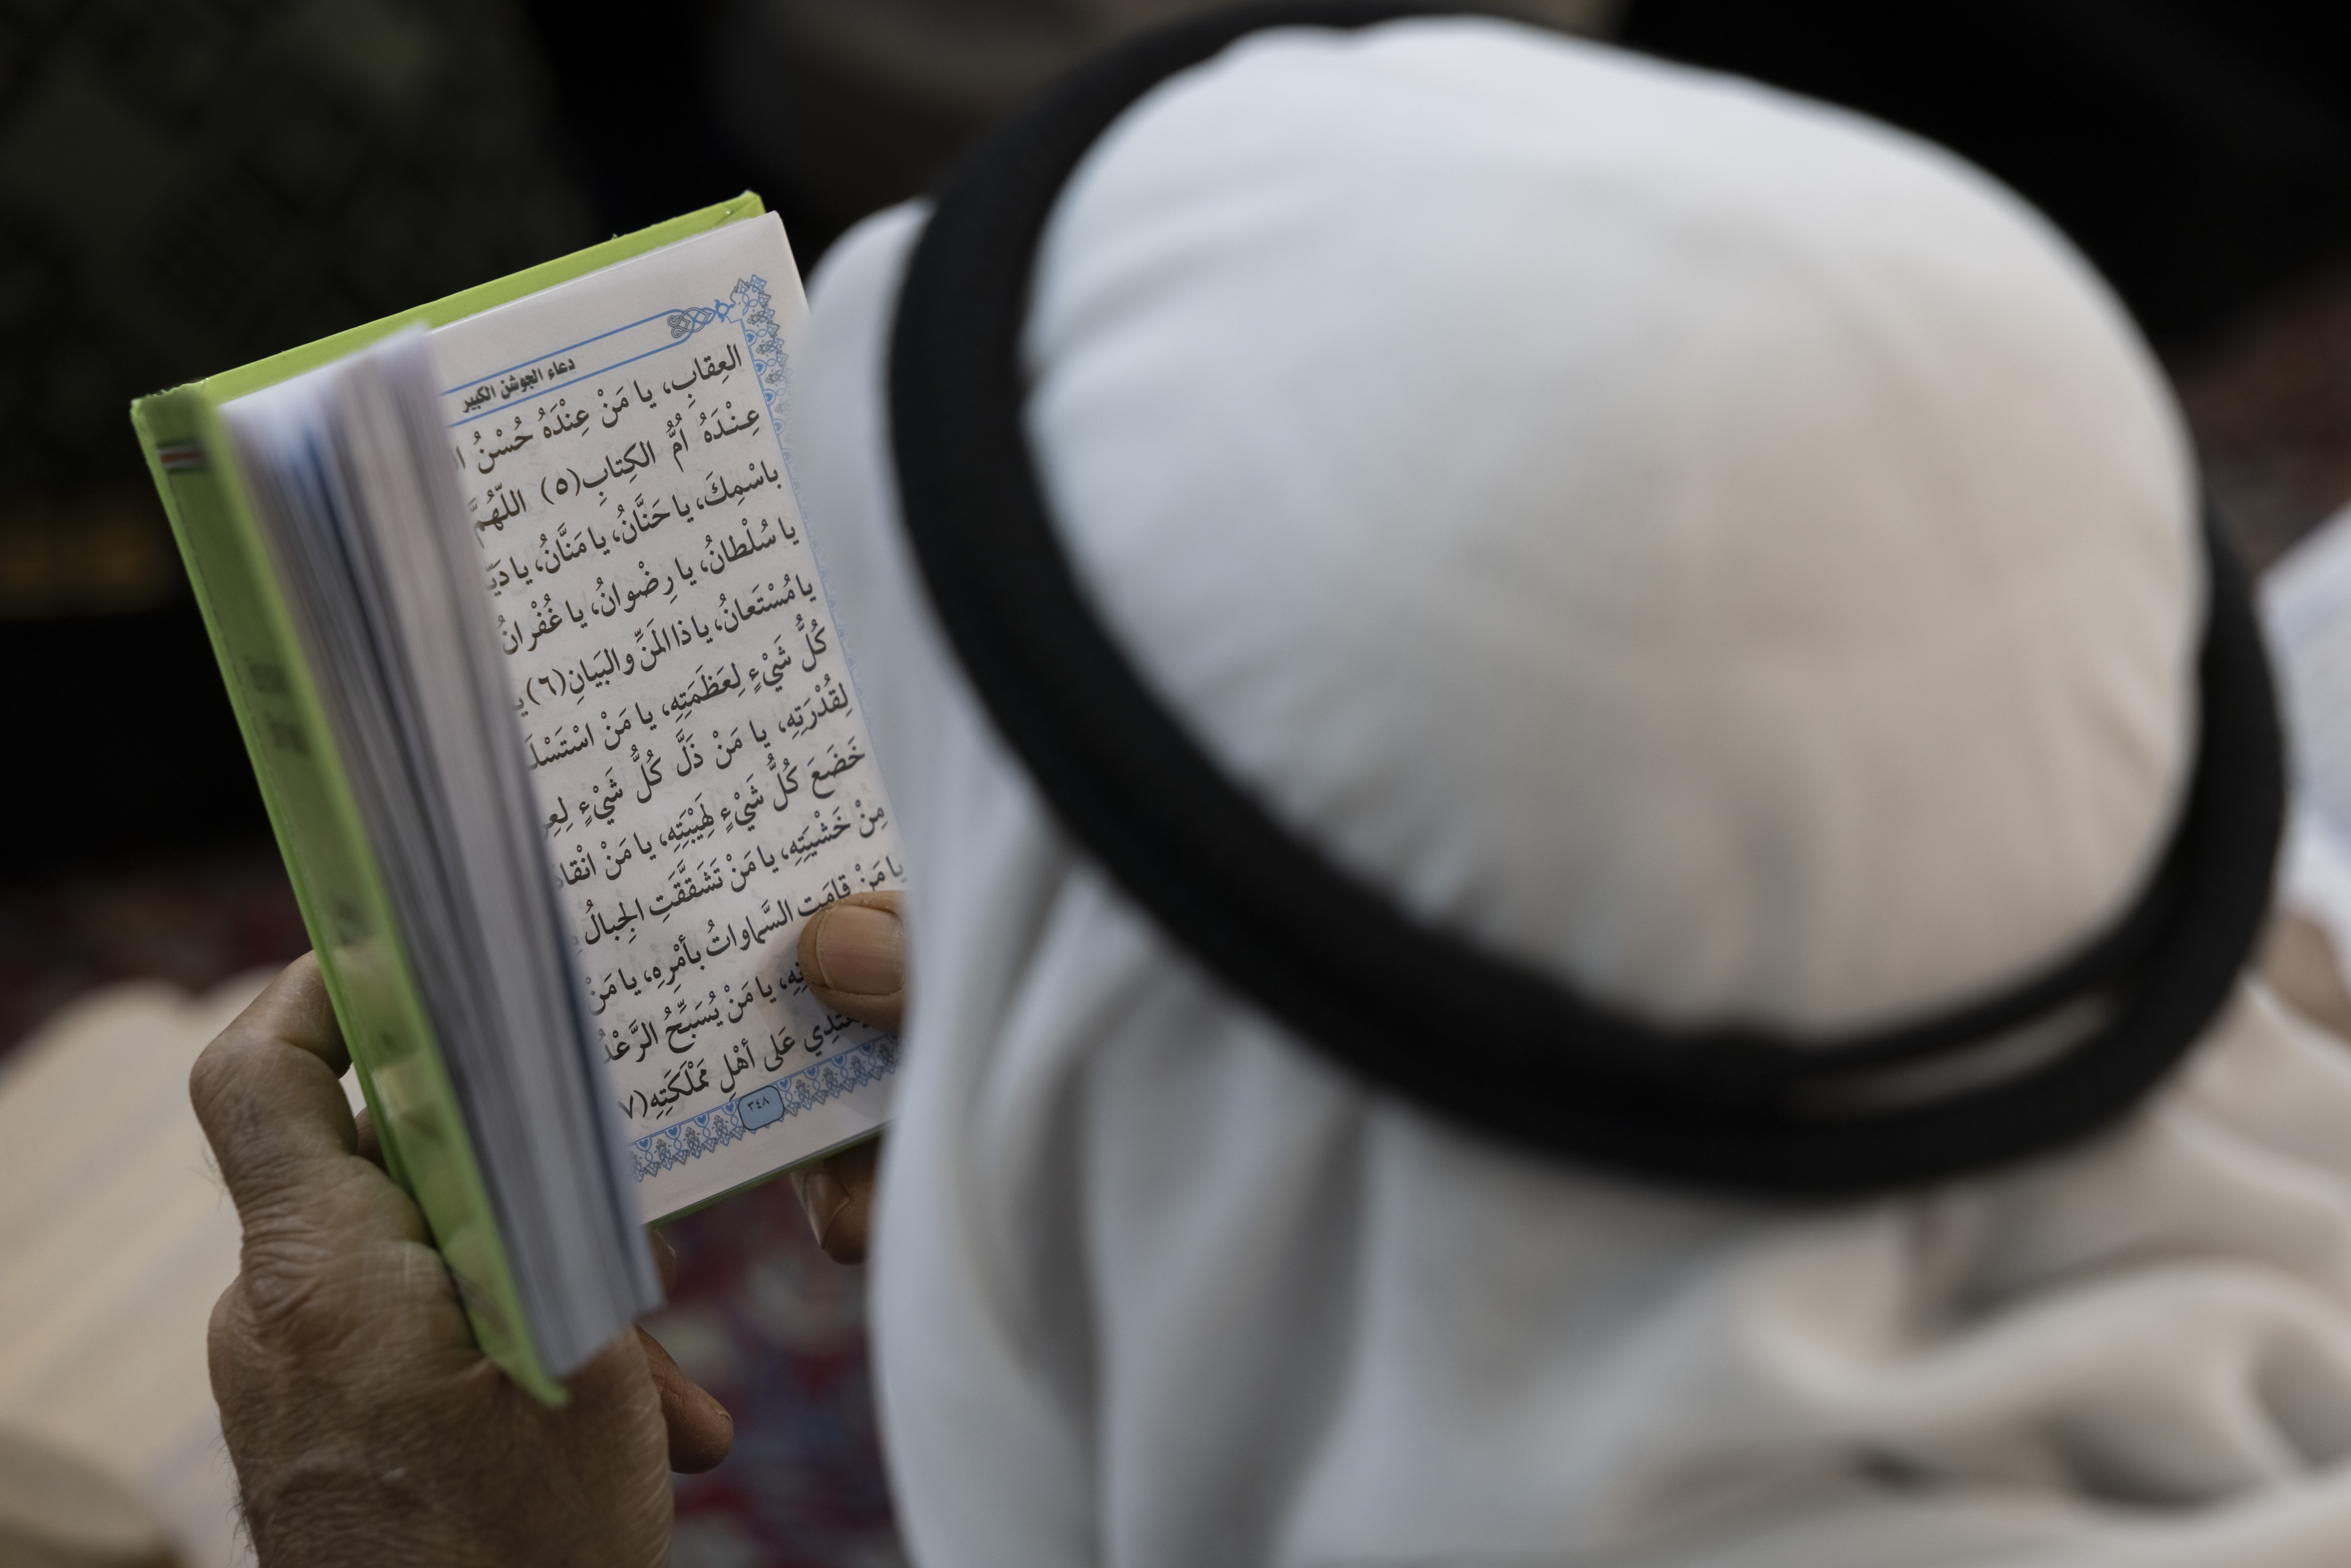 دعاء الجوشن الكبير
العِقابِ، يا مَنْ عِنْدَهُ حُسْنُ
عِنْدَهُ أُمُّ الكِتابِ(٥) اللّهُمَّ
باسْمِكَ، يا حَنَّانُ، يا مَنَّانُ، يا
يا سُلْطانُ، يا رِضْوانُ، يا غُفْرانُ
يا مُسْتَعانُ، يا ذا المَنِّ والبَيَانِ(٦)
كُلُّ شَيْءٍ لِعَظَمَتِهِ، يا مَنْ
لِقُدْرَتِهِ، يا مَنْ ذَلَّ كُلُّ شَيْءٍ
خَضَعَ كُلُّ شَيْءٍ لِهَيْبَتِهِ، يا مَنْ
مِنْ خَشْيَتِهِ، يا مَنْ تَشَقَّقَتِ الجِبالُ
يا مَنْ قامَتِ السَّماواتُ بأمْرِهِ، يا مَنْ
يا مَنْ يُسَبِّحُ الرَّعْدُ
عَلى أهْلِ مَمْلَكَتِهِ(٧
٣٤٨